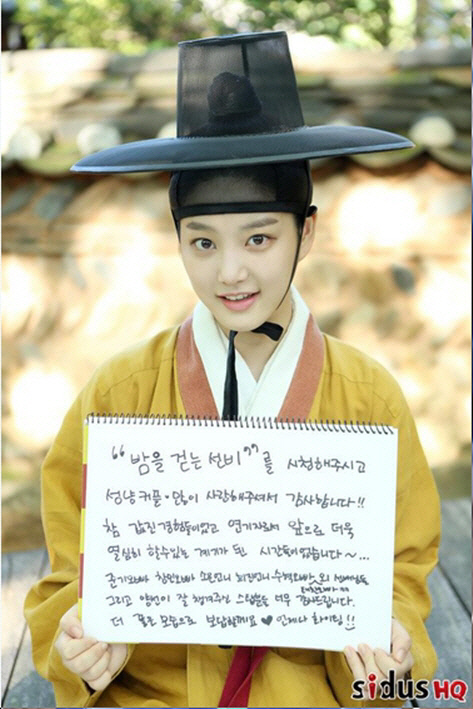 "밤을 걷는 선비"를 시청해주시고
성냥커플♥ 많이 사랑해주셔서 감사합니다!!
참 값진 경험들이었고 연기자로서 앞으로 더욱
열심히 할 수 있는 계기가 된 시간들이었습니다~...
준기오빠 창민오빠 소은언니 수혁오빠
그리고 양선이 잘 챙겨주신 스탭분들 너무 감사드립니다.
더 좋은 모습으로 보답할께요♥ 언제나 화이팅!!
sidusHQ